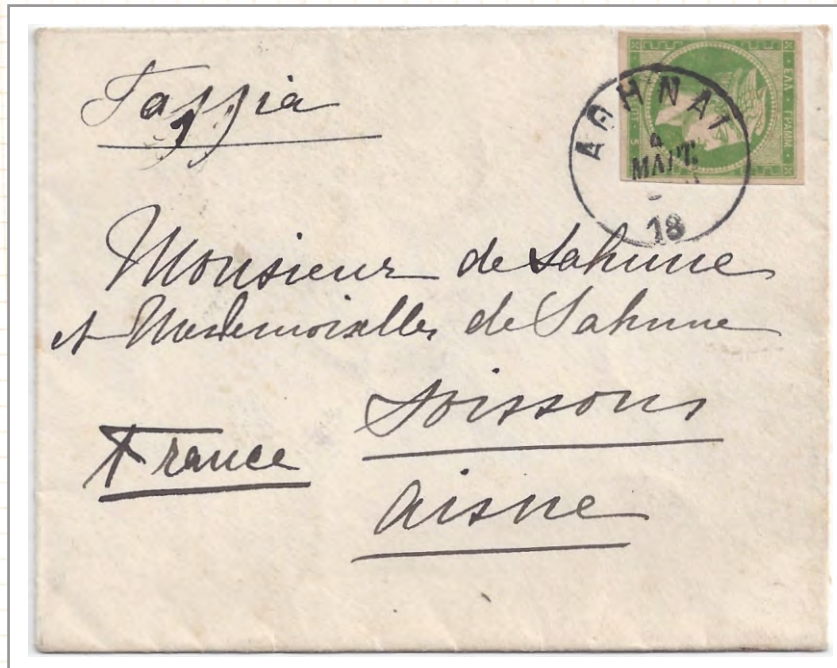 Γαλλία
ΕΛΛ · ΓΡΑΜΜ
ΑΘΗΝΑΙ
4
ΜΑΡΤ.
18
Monsieur de Sahune
et Mesdemoiselles de Sahune
Soissons
France
Aisne